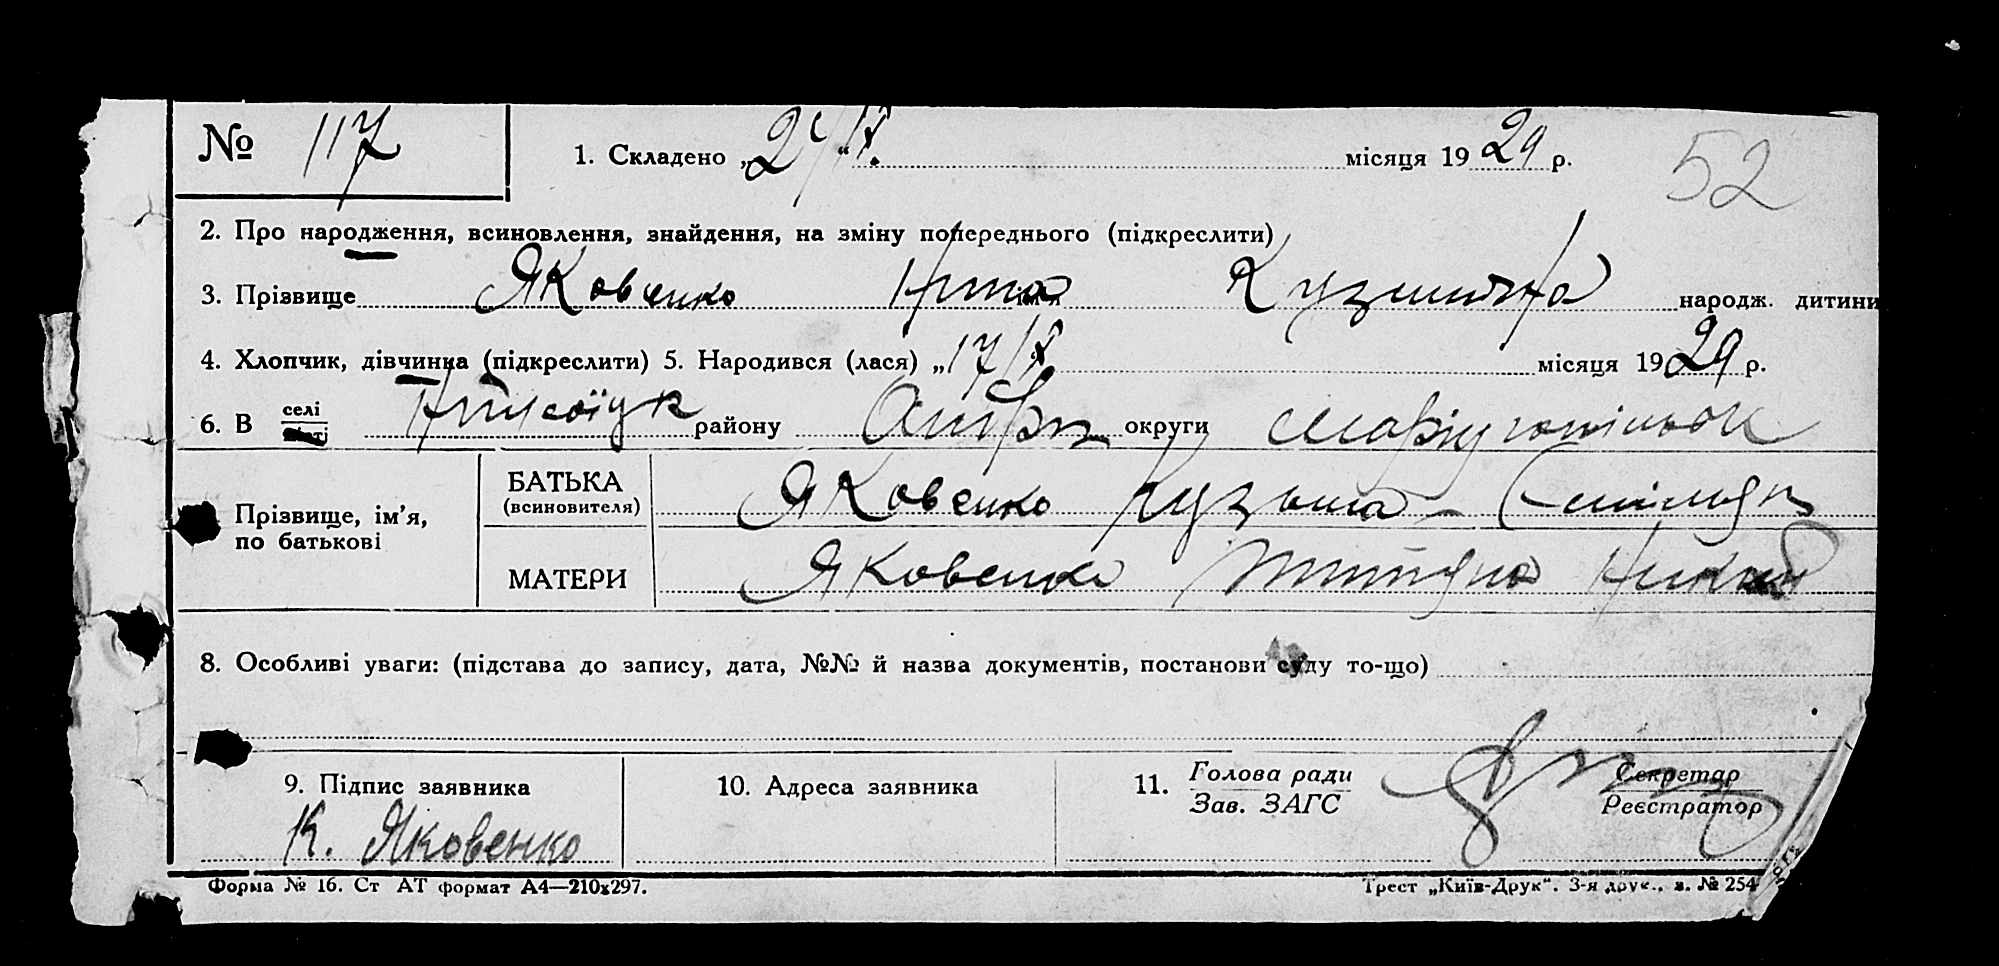 № 117 1. Складено „24“/X місяця 1929 р. 52
2. Про народження, всиновлення, знайдення, на зміну попереднього (підкреслити)
3. Прізвище Яковенко народж. дитини
4. Хлопчик, дівчинка (підкреслити) 5. Народився (лася) „17/X місяця 1929 р.
6. В селі місті району округи
Прізвище, ім’я, по батькові
БАТЬКА (всиновителя) Яковенко Кузьма
МАТЕРИ Яковенко
8. Особливі уваги: (підстава до запису, дата, №№ й назва документів, постанови суду то-що)
9. Підпис заявника 10. Адреса заявника 11. Голова ради Зав. ЗАГС Секретар Реєстратор
К. Яковенко
Форма № 16. Ст АТ формат А4—210х297. Трест „Київ-Друк“. 3-я друк., з. № 254